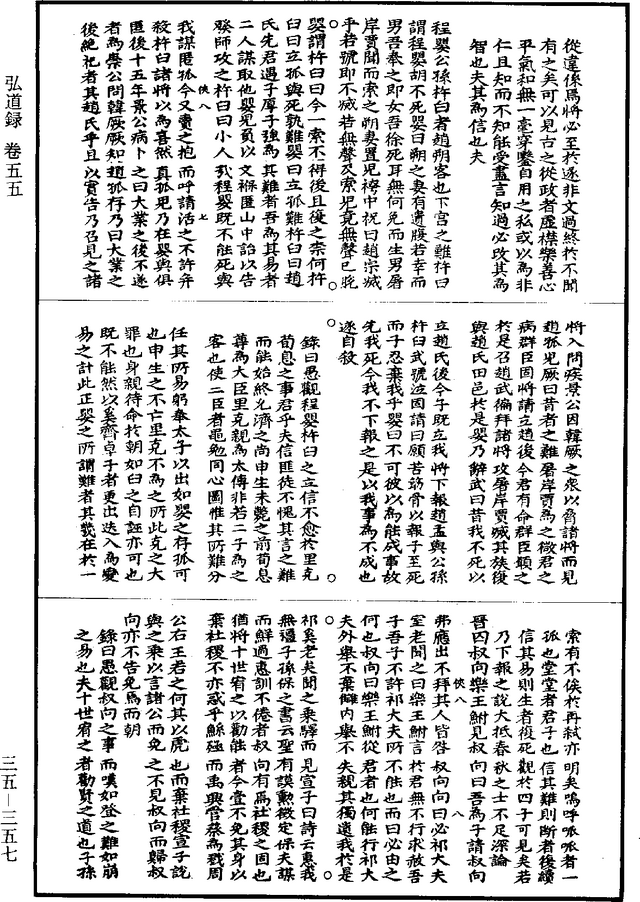 弘道録　卷五五
從違係焉將必至於逐非文過終於不聞
有之矣可以見古之從政者虛襟樂善心
平氣和無一毫穿鑿自用之私或以為非
仁且知而不知能受盡言知過必攻其為
智也夫其為信也夫
程嬰公孫杵臼者趙朔客也下宮之難杵臼
謂程嬰胡不死嬰曰朔之妻有遺腹若幸而
男吾奉之即女吾徐死耳無何免而生男屠
岸賈聞而索之朔妻置兒袴中祝曰趙宗滅
乎若號即不滅若無聲及索兒竟無聲已脫
嬰謂杵臼曰今一索不得後且復之柰何杵
臼曰立孤與死孰難嬰曰立孤難杵臼曰趙
氏先君遇子厚子強為其難者吾為其易者
二人謀取他嬰兒負以文褓匿山中詒以告
發師攻之杵臼曰小人哉程嬰既不能死與
俠八　七
我謀匿孤今又賣之抱而呼請活之不許并
殺杵臼諸將以為喜然真孤兒乃在嬰與俱
匿後十五年景公病卜之曰大業之後不遂
者為祟公問韓厥厥知趙孤存乃曰大業之
後絕祀者其趙氏乎且以實告乃召見之諸
將入問疾景公因韓厥之衆以脅諸將而見
趙孤兒厥曰昔者之難屠岸賈為之微君之
病群臣固將請立趙後今君有命群臣願之
於是召趙武徧拜諸將攻屠岸賈滅其族復
與趙氏田邑於是嬰乃辭武曰昔我不死以
立趙氏後今子既立我將下報趙孟與公孫
杵臼武號泣固請曰願苦筋骨以報子至死
而子忍棄我乎嬰曰不可彼以為能成事故
先我死今我不下報之是以我事為不成也
遂自殺
錄曰愚觀程嬰杵臼之立信不愈於里克
荀息之事君乎夫信匪徒不愧其言之難
而能始終允濟之尚申生未斃之前荀息
蓴為大臣里克親為太傅非若二子為之
客也使二臣者黽勉同心圖惟其所難分
任其所易躬奉太子以出如嬰之存孤可
也申生之不亡里克不為之所此克之大
罪也身親待命於朝如臼之自誣亦可也
既不能然以奚齊卓子者更出迭入為變
易之計此正嬰之所謂難者其幾在於一
索有不俟於再弒亦明矣嗚呼呱呱者一
孤也堂堂者君子也信其難則斷者復續
信其易則生者復死觀於四子可見矣若
乃下報之說大抵春秋之士不足深論
晉囚叔向樂王鮒見叔向曰吾為子請叔向
俠八　八
弗應出不拜其人皆咎叔向叔向曰必祁大夫
室老聞之曰樂王鮒言於君無不行求赦吾
子吾子不許祁大夫所不能也而曰必由之
何也叔向曰樂王鮒從君者也何能行祁大
夫外舉不棄讎內舉不失親其獨遺我於是
祁奚老矣聞之乘驛而見宣子曰詩云惠我
無疆子孫保之書云聖有謨勲徵定保夫謀
而鮮過惠訓不倦者叔向有焉社稷之固也
猶將十世宥之以勸能者今壹不免其身以
棄社稷不亦惑乎鯀殛而禹興管蔡為戮周
公右王若之何其以虎也而棄社稷宣子說
與之乘以言諸公而免之不見叔向而歸叔
向亦不告免焉而朝
錄曰愚觀叔向之事而嘆如登之難如崩
之易也夫十世宥之者勸賢之道也子孫
三五—三五七